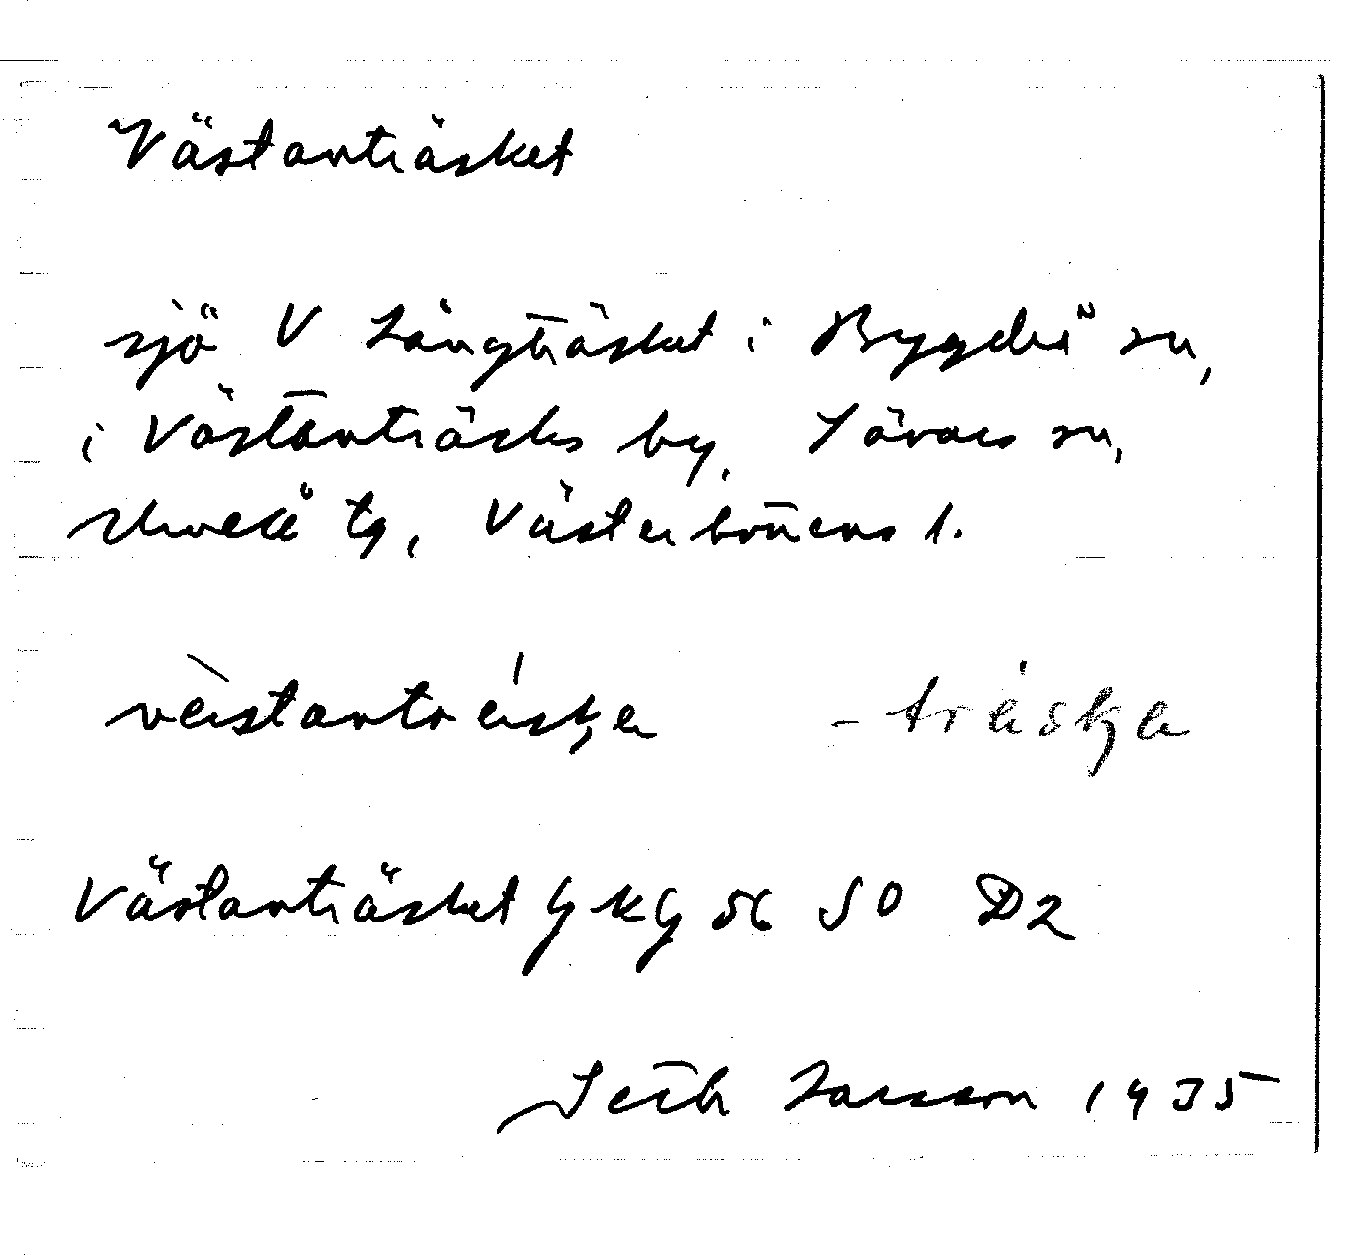 Västanträsket
sjö V Långträsket i Bygdeå sn,
i Västanträsks by, Sävars sn,
Umeå tg, Västerbottens l.
västanträskʒɐ -träskʒɐ
Västanträsket GKG 56 SO D2
Seth Larsson 1935